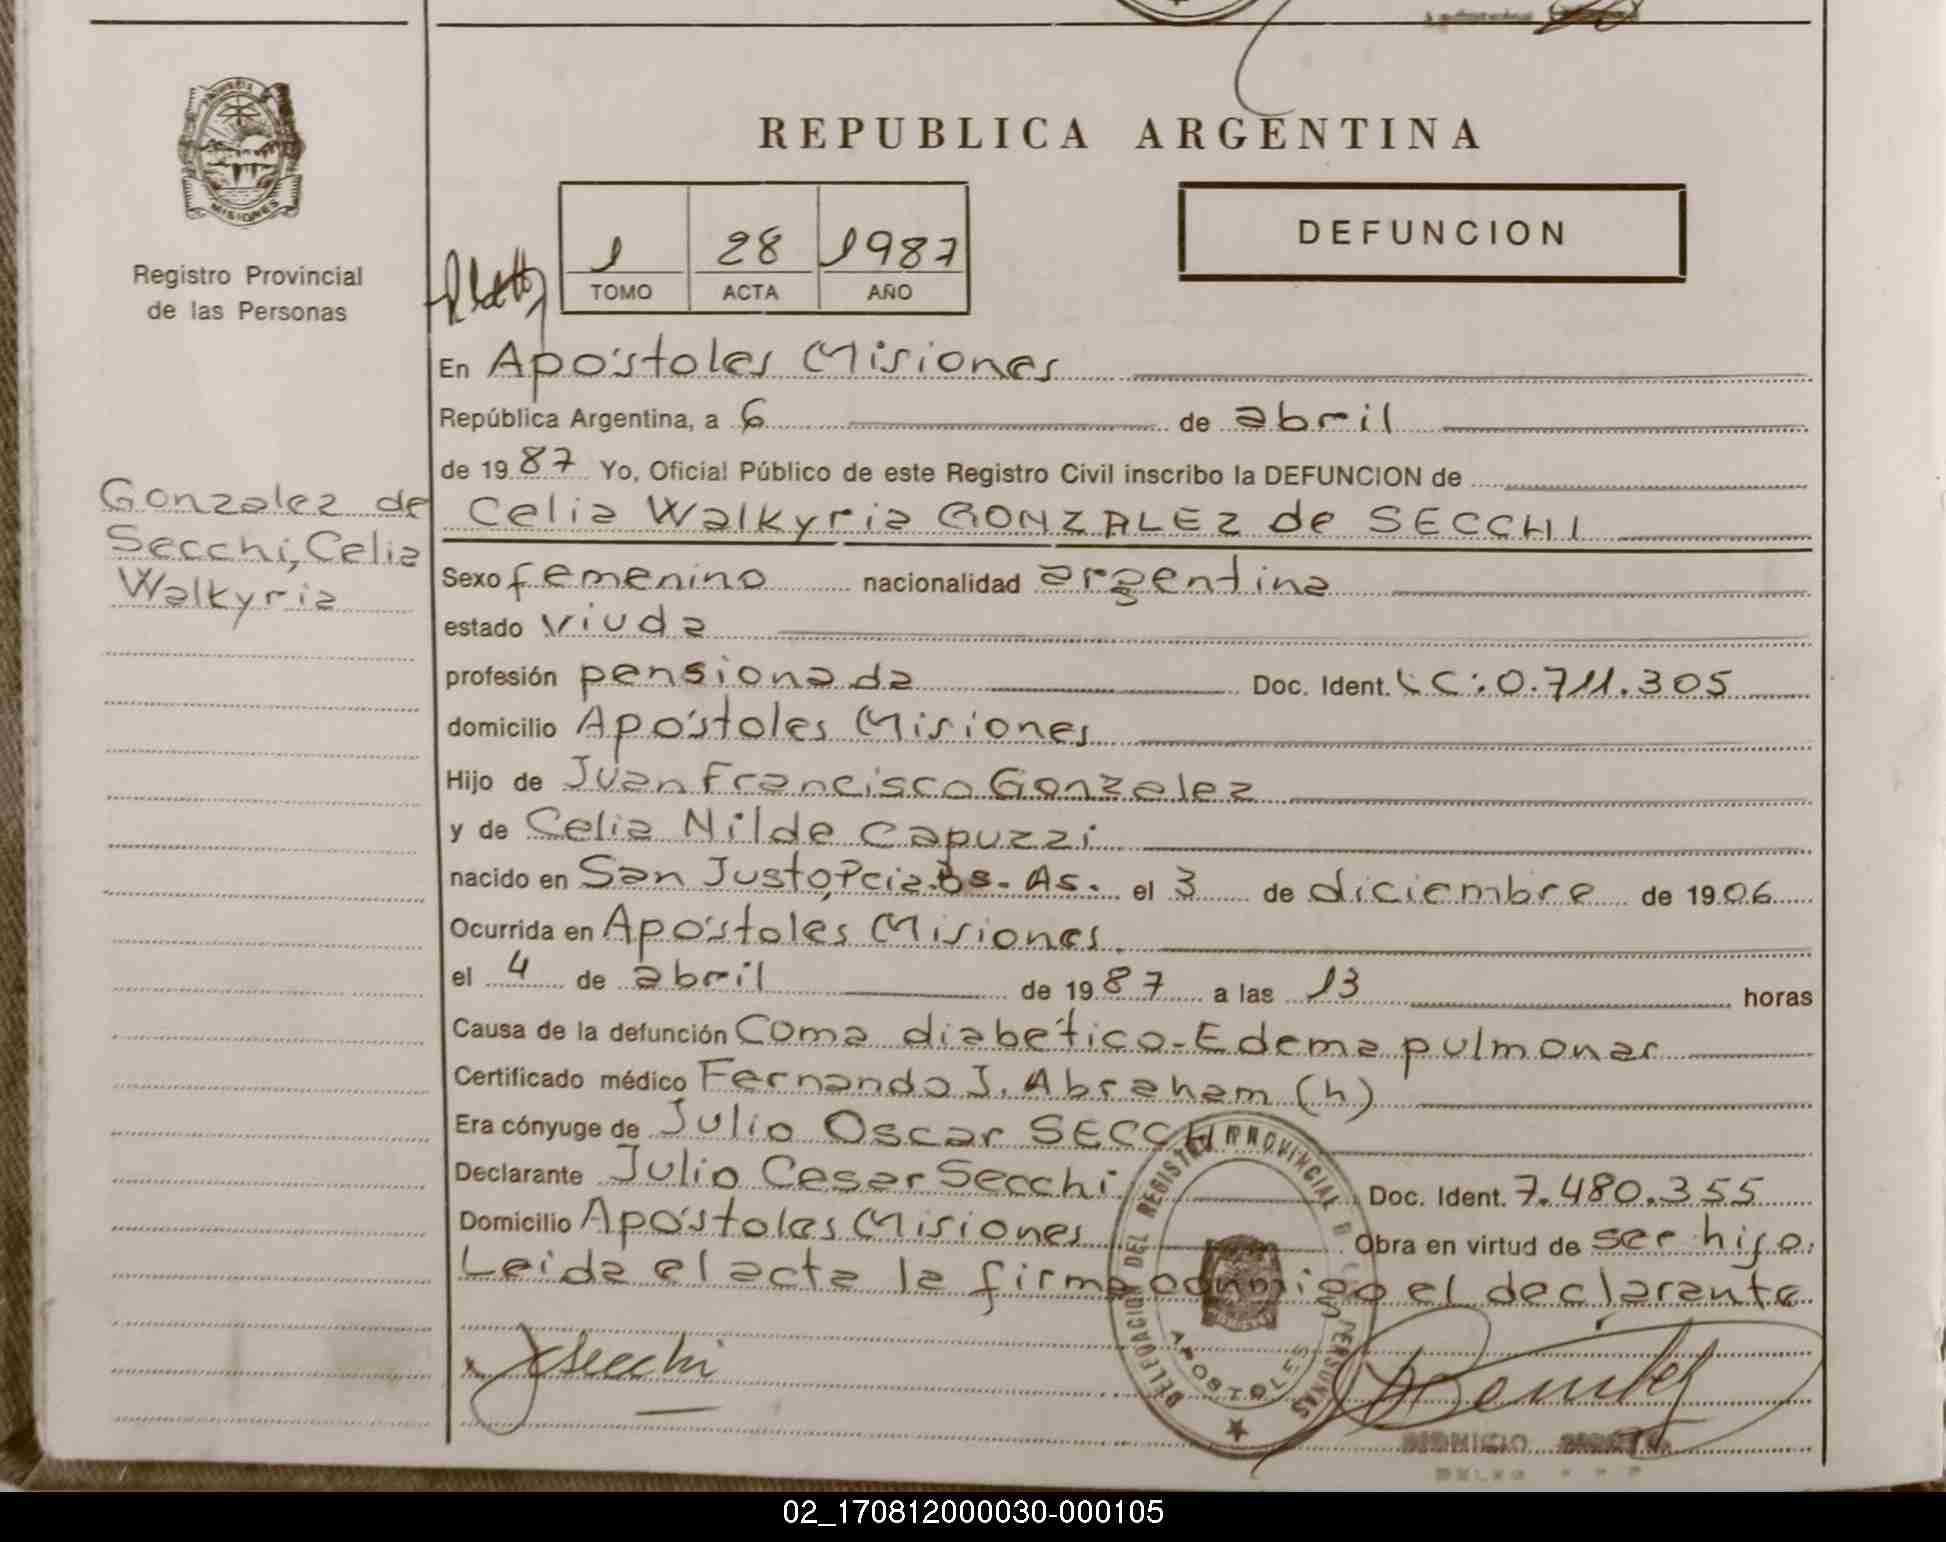 REPUBLICA ARGENTINA
MISIONES
Registro Provincial
de las Personas
1 28 1987
TOMO ACTA AÑO
DEFUNCION
En Apóstoles Misiones
República Argentina, a 6 de abril
de 1987 Yo, Oficial Público de este Registro Civil inscribo la DEFUNCION de
Gonzalez de
Secchi, Celia
Walkyria
Celia Walkyria GONZALEZ de SECCHI
Sexo femenino nacionalidad argentina
estado viuda
profesión pensionada Doc. Ident. LC: 0.711.305
domicilio Apóstoles Misiones
Hijo de Juan Francisco Gonzalez
y de Celia Nilde Capuzzi
nacido en San Justo, Pcia. Bs. As. el 3 de diciembre de 1906
Ocurrida en Apóstoles Misiones
el 4 de abril de 1987 a las 13 horas
Causa de la defunción Coma diabético - Edema pulmonar
Certificado médico Fernando J. Abraham (h)
Era cónyuge de Julio Oscar SECCHI
Declarante Julio Cesar Secchi Doc. Ident. 7.480.355
Domicilio Apóstoles Misiones Obra en virtud de ser hijo.
Leida el acta la firma conmigo el declarante
JSecchi
DELEGACION DEL REGISTRO PROVINCIAL DE LAS PERSONAS
APOSTOLES
DIONICIO
02_170812000030-000105